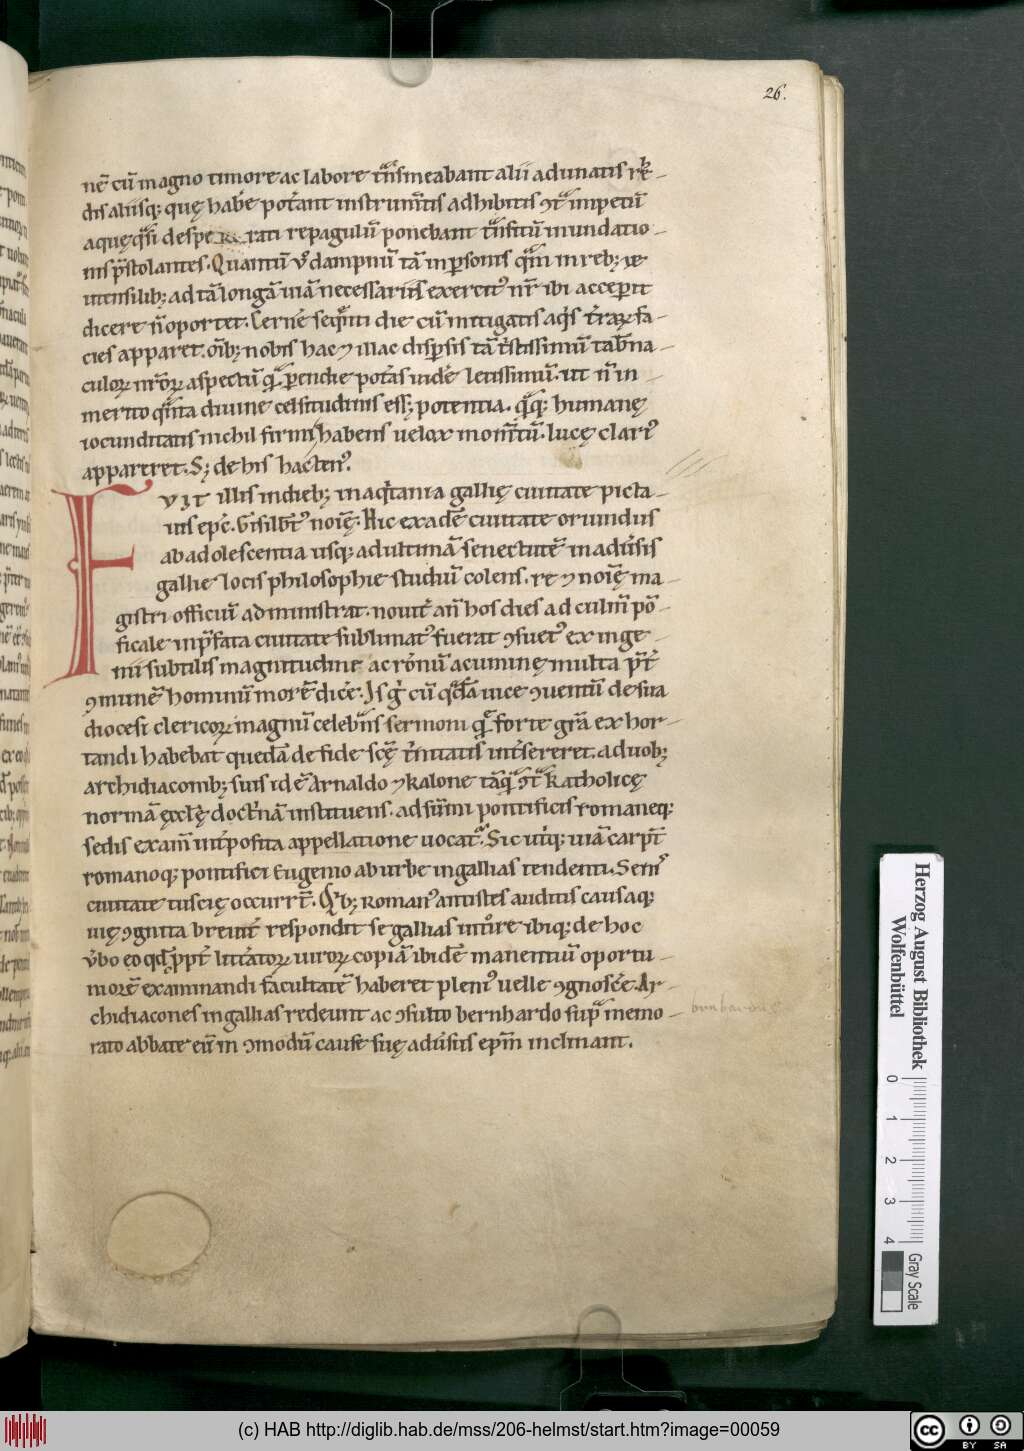 26.
nē cū magno timore ac labore tᵃnsmeabant alii adunatis rē-
dis aliisq; quę habe͛ pot͛ant instrum̄tis adhibitis ꝯtᵃ impetū
aquę qᵃsi despe rati repagulū ponebant tᵃnsitū inundatio-
nis p̄stolantes. Quantū u͛ dampnū tā in ꝑsonis qᵃm in reb; &
utensilib; ad tā longā uiā necessariis exercitꝰ nr̄ ibi acceꝑit
dicere n̄ oportet. Cerne͛ seqn̄ti die cū mitigatis aqͥs t͛raꝝ fa-
cies apparet. oīb; nobis hac ⁊ illac disꝑsis tā t͛stissimū tab͛na-
culoꝝ nr̄oꝝ aspectū qᵃ pͥdie potas uide͛ letissimū. ut n̄ in-
merito qᵃnta diuine celsitudinis ess; potentia. qᵃq; humanę
iocunditatis nichil firmi habens uelox mom̄tū. lucę clariꝰ
appareret. S; de his hactenꝰ.
FVIT illis in dieb; in aqͥtania gallię ciuitate picta-
uis epc̄. Gisilb͛tꝰ noīe. Hic ex adē ciuitate oriundus
ab adolescentia usq; ad ultimā senectutē in adu͛sis
gallie locis philosophie studiū colens. re ⁊ noīe ma-
gistri officiū administrat. nouit͛ an̄ hos dies ad culm̄ pō-
ficale in p̄fata ciuitate sublimatꝰ fuerat ꝯsuetꝰ ex inge-
nii subtilis magnitudine ac ro͛nū acumine multa p̄t͛
ꝯmunē hominū morē dice͛. Is gͥ cū qᵒdā uice ꝯuentū de sua
diocesi clericoꝝ magnū celebᵃns sermoni quē forte grā exhor-
tandi habebat quedā de fide scę tͥnitatis int͛sereret. a duob;
archidiaconib; suis id ē Arnaldo ⁊ kalone tāqᵃ ꝯtᵃ katholicę
normā ęcclę doctͥnā instituens. ad sūmi pontificis romaneq;
sedis exam̄ int͛posita appellatione uocat. Sic utq; uiā carpt͛
romanoq; pontifici Eugenio ab urbe in gallias tendenti. Senꝰ
ciuitate tuscię occurrt͛. Qͥb; Romanꝰ antistes auditis causaq;
uię ꝯgnita breuit͛ respondit se gallias intͣre ibiq; de hoc
u͛bo eo qd̄ ꝓpt͛ litt͛atoꝝ uiroꝝ copiā ibidē manentiū oportu-
niorē examinandi facultatē haberet pleniꝰ uelle ꝯgnosce͛. Ar-
chidiacones in gallias redeunt ac ꝯsulto bernhardo supᵃ memo-
rato abbate eū in ꝯmodū cause suę adu͛sus epm̄ inclinant.
Herzog August Bibliothek
Wolfenbüttel
0 1 2 3 4
Gray Scale
(c) HAB http://diglib.hab.de/mss/206-helmst/start.htm?image=00059
cc BY SA